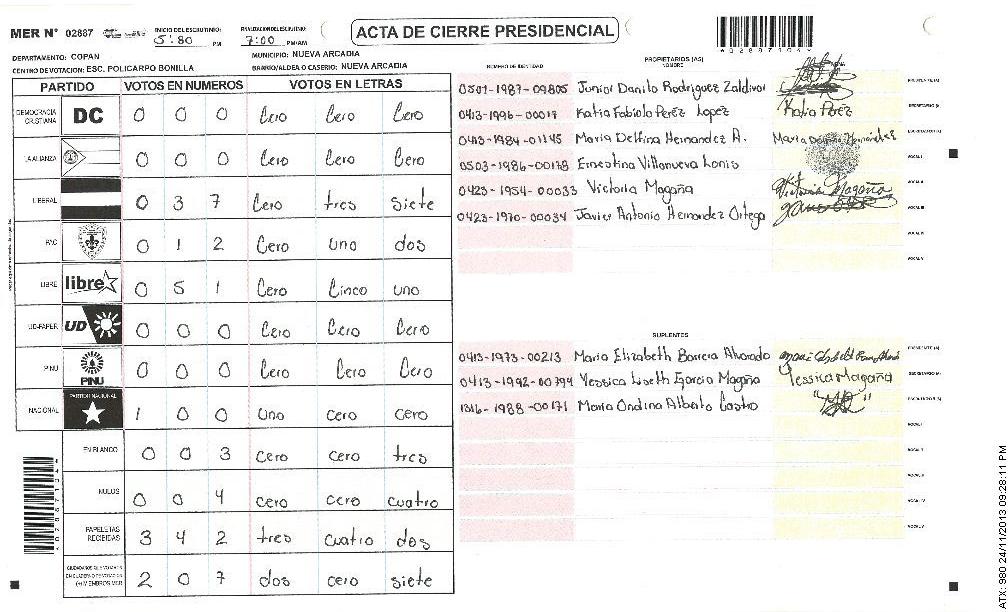 MER N° 02887
INICIO DEL ESCRUTINIO: 5:80 PM
7:00 PM/AM
ACTA DE CIERRE PRESIDENCIAL
DEPARTAMENTO: COPAN
MUNICIPIO: NUEVA ARCADIA
CENTRO DE VOTACION: ESC. POLICARPO BONILLA
BARRIO/ALDEA O CASERIO: NUEVA ARCADIA
PARTIDO VOTOS EN NUMEROS VOTOS EN LETRAS
DEMOCRACIA CRISTIANA DC 0 0 0 Cero Cero Cero
LA ALIANZA 0 0 0 Cero Cero Cero
LIBERAL 0 3 7 Cero tres siete
PAC 0 1 2 Cero uno dos
LIBRE libre 0 5 1 Cero Cinco uno
UD-FAPER UD 0 0 0 Cero Cero Cero
PINU PINU 0 0 0 Cero Cero Cero
NACIONAL PARTIDO NACIONAL 1 0 0 uno cero cero
EN BLANCO 0 0 3 cero cero tres
NULOS 0 0 4 cero cero cuatro
PAPELETAS RECIBIDAS 3 4 2 tres cuatro dos
CIUDADANOS QUE VOTARON EN CUADERNO DE VOTACION (+) MIEMBROS MER 2 0 7 dos cero siete
NÚMERO DE IDENTIDAD PROPIETARIOS (AS) NOMBRE
0501-1987-09805 Junior Danilo Rodriguez Zaldivar PRESIDENTE (A)
0413-1996-00017 Katia Fabiola Perez Lopez Katia Perez SECRETARIO (A)
0413-1984-01145 Maria Delfina Hernandez A. Maria Delfina Hernández ESCRUTADOR (A)
0503-1986-00178 Ernestina Villanueva Lonis VOCAL I
0423-1954-00033 Victoria Magaña Victoria Magaña VOCAL II
0423-1970-00034 Javier Antonio Hernandez Ortega VOCAL III
VOCAL IV
VOCAL V
SUPLENTES
0413-1973-00213 Maria Elizabeth Barrera Alvarado PRESIDENTE (A)
0413-1992-00794 Yessica Liseth Garcia Magaña Yessica Magaña SECRETARIO (A)
1316-1988-00171 Maria Ondina Alberto Castro ESCRUTADOR (A)
VOCAL I
VOCAL II
VOCAL III
VOCAL IV
VOCAL V
ATX: 980 24/11/2013 09:28:11 PM